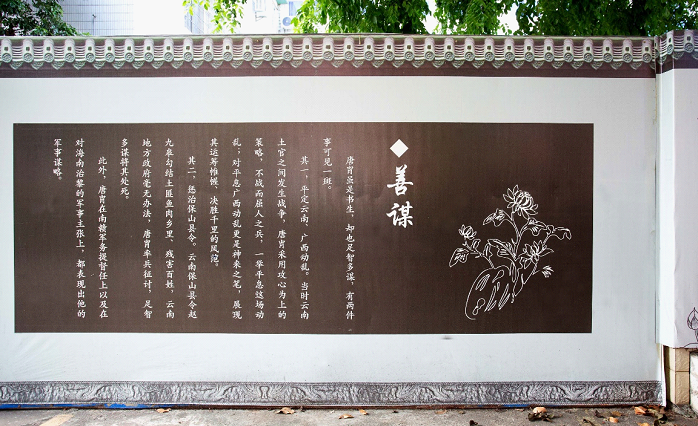 善谋
唐胄虽是书生，却也足智多谋，有两件
事可见一斑。
其一，平定云南、广西动乱。当时云南
土官之间发生战争，唐胄采用攻心为上的
策略，不战而屈人之兵，一举平息这场动
乱；对平息广西动乱更是神来之笔，展现
其运筹帷幄、决胜千里的风范。
其二，惩治保山县令。云南保山县令赵
九皋勾结土匪鱼肉乡里、残害百姓，云南
地方政府毫无办法，唐胄率兵征讨，足智
多谋将其处死。
此外，唐胄在南赣军务提督任上以及在
对海南治黎的军事主张上，都表现出他的
军事谋略。